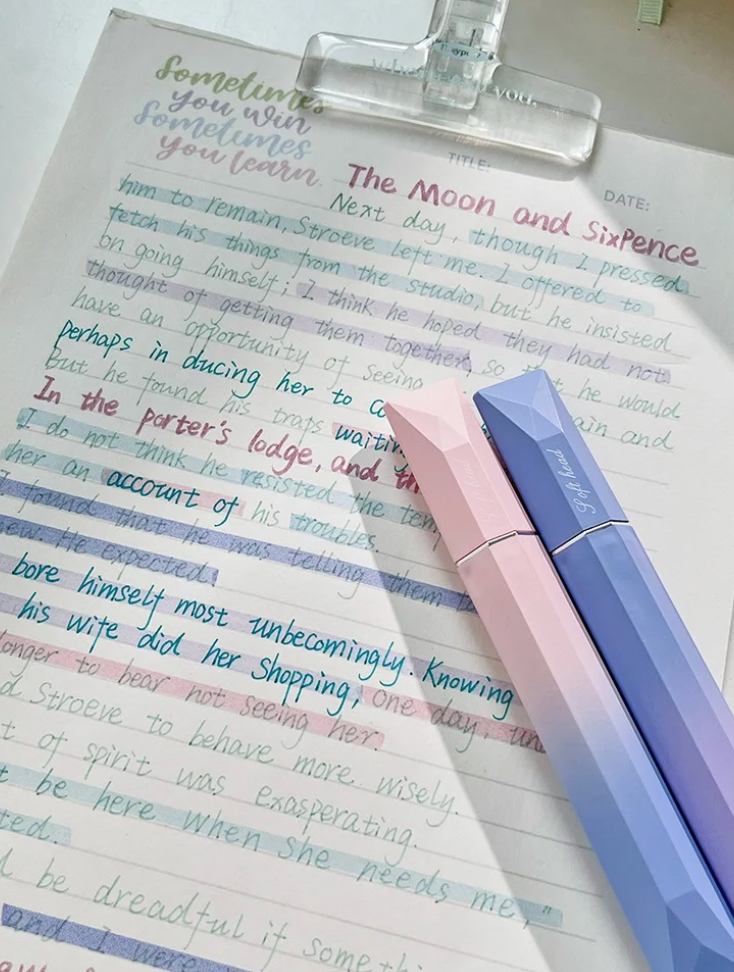 Sometimes
you win
Sometimes
you learn
you.
TITLE:
DATE:
The Moon and SixPence
Next day, though I pressed
him to remain, Stroeve left me. I offered to
fetch his things from the studio, but he insisted
on going himself; I think he hoped they had not
thought of getting them together, so he would
have an opportunity of seeing ain and
perhaps in ducing her to co
But he found his traps waitin
In the porter's lodge, and th
I do not think he resisted the tem
her an account of his troubles.
I found that he was telling them to
ew. He expected.
bore himself most unbecomingly. Knowing
his wife did her Shopping, one day, un
onger to bear not seeing her.
d Stroeve to behave more wisely.
t of spirit was exasperating.
t be here when She needs me,"
ted.
l be dreadful if somethi
and I were
Soft head
Soft head